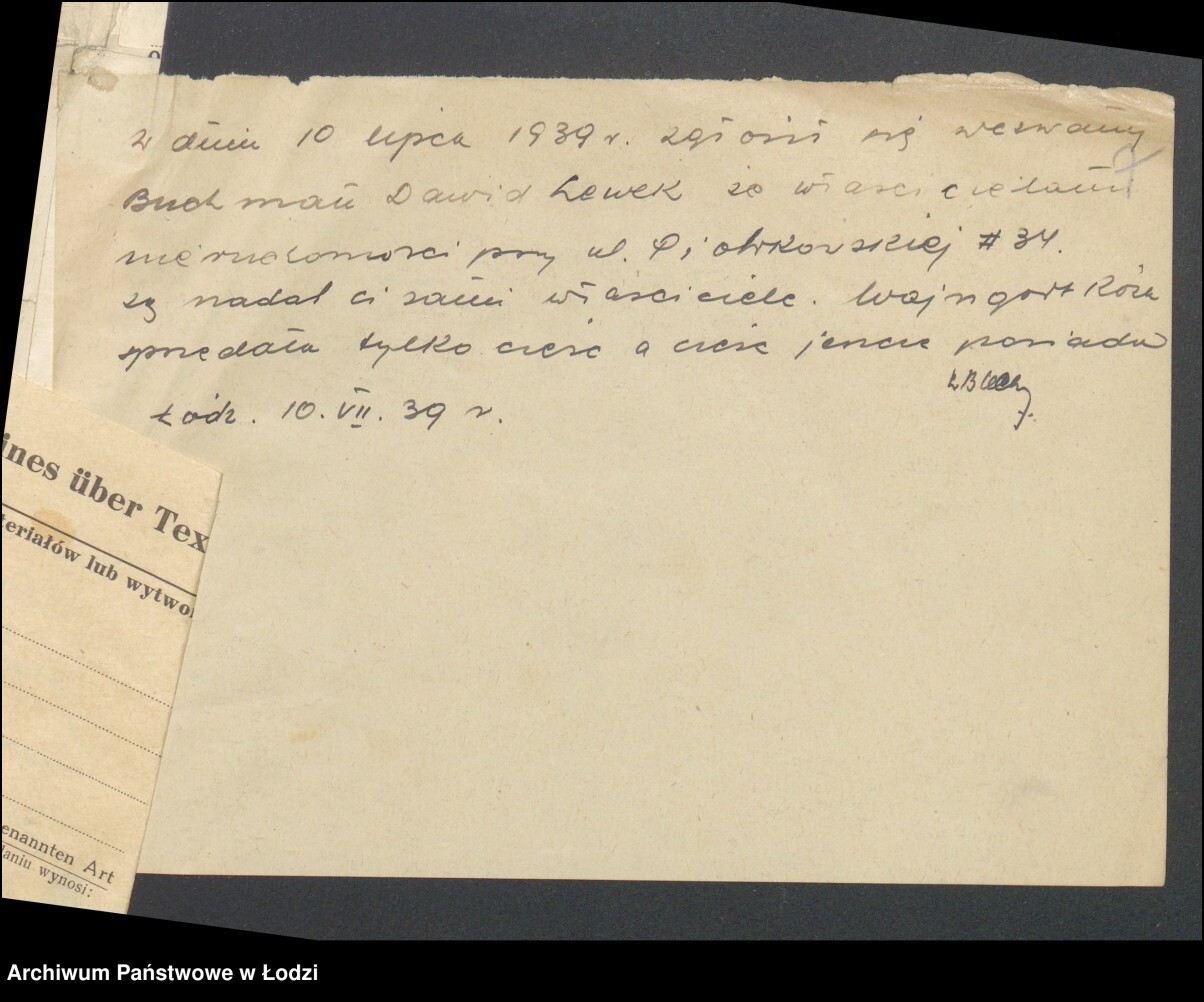 w dniu 10 lipca 1939 r. zgłosił się wezwany
Buchman Dawid Lewek że właścicielami
nieruchomości przy ul. Piotrkowskiej # 34.
są nadal ci sami właściciele. Wajngort Róża
sprzedała tylko cześć a cześć jescie posiada
Łódz. 10. VII. 39 r.
ines über Tex
teriałów lub wytwo
enannten Art
daniu wynosi:
Archiwum Państwowe w Łodzi